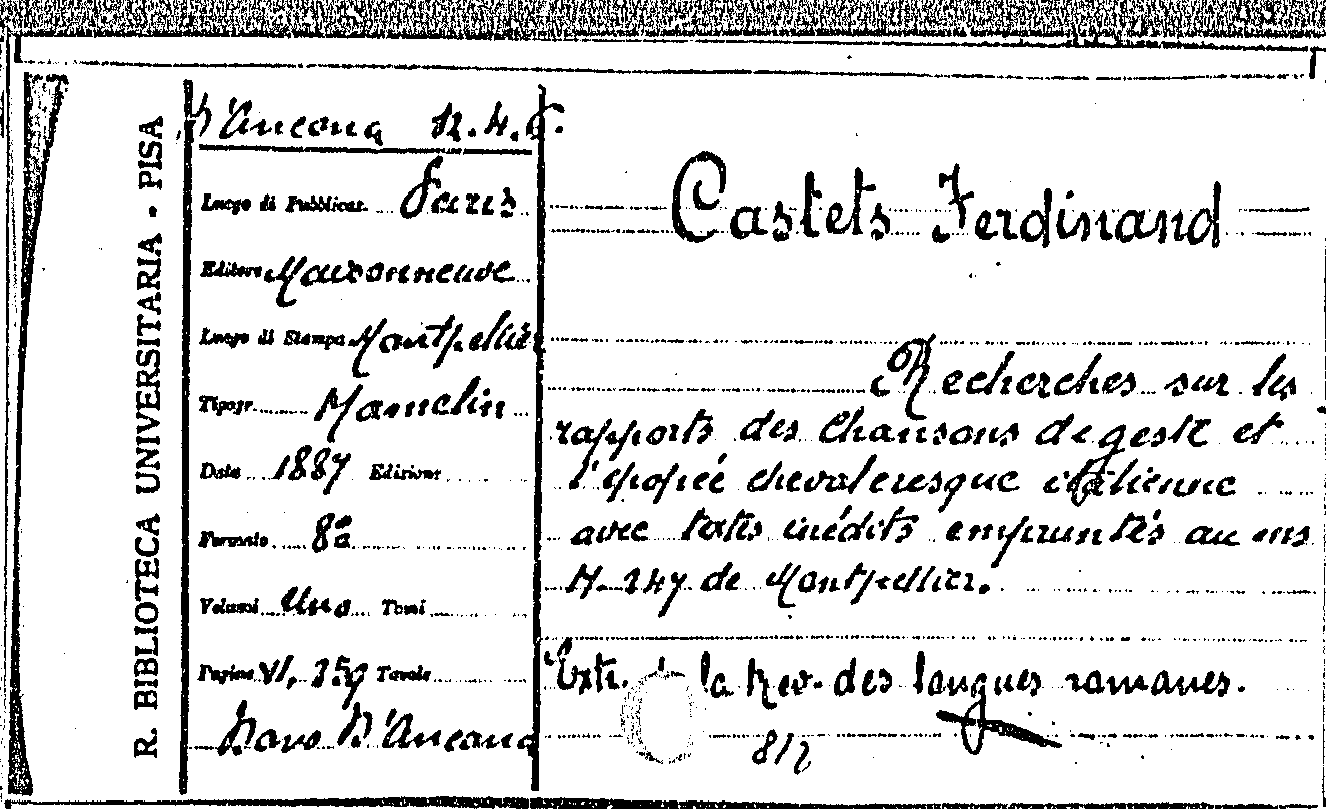 R. BIBLIOTECA UNIVERSITARIA - PISA
D'Ancona 12.4.6.
Luogo di Pubblicaz. Paris
Editore Maisonneuve
Luogo di Stampa Montpellier
Tipogr. Hamelin
Data 1887 Edizione
Formato 8º
Volumi Uno Tomi
Pagine VI, 259 Tavole
Dono D'Ancona
Castets Ferdinand
Recherches sur les
rapports des Chansons de geste et
l'épopée chevaleresque italienne
avec textes inédits empruntés au ms
H. 247 de Montpellier.
Extr. de la Rev. des langues romanes.
812